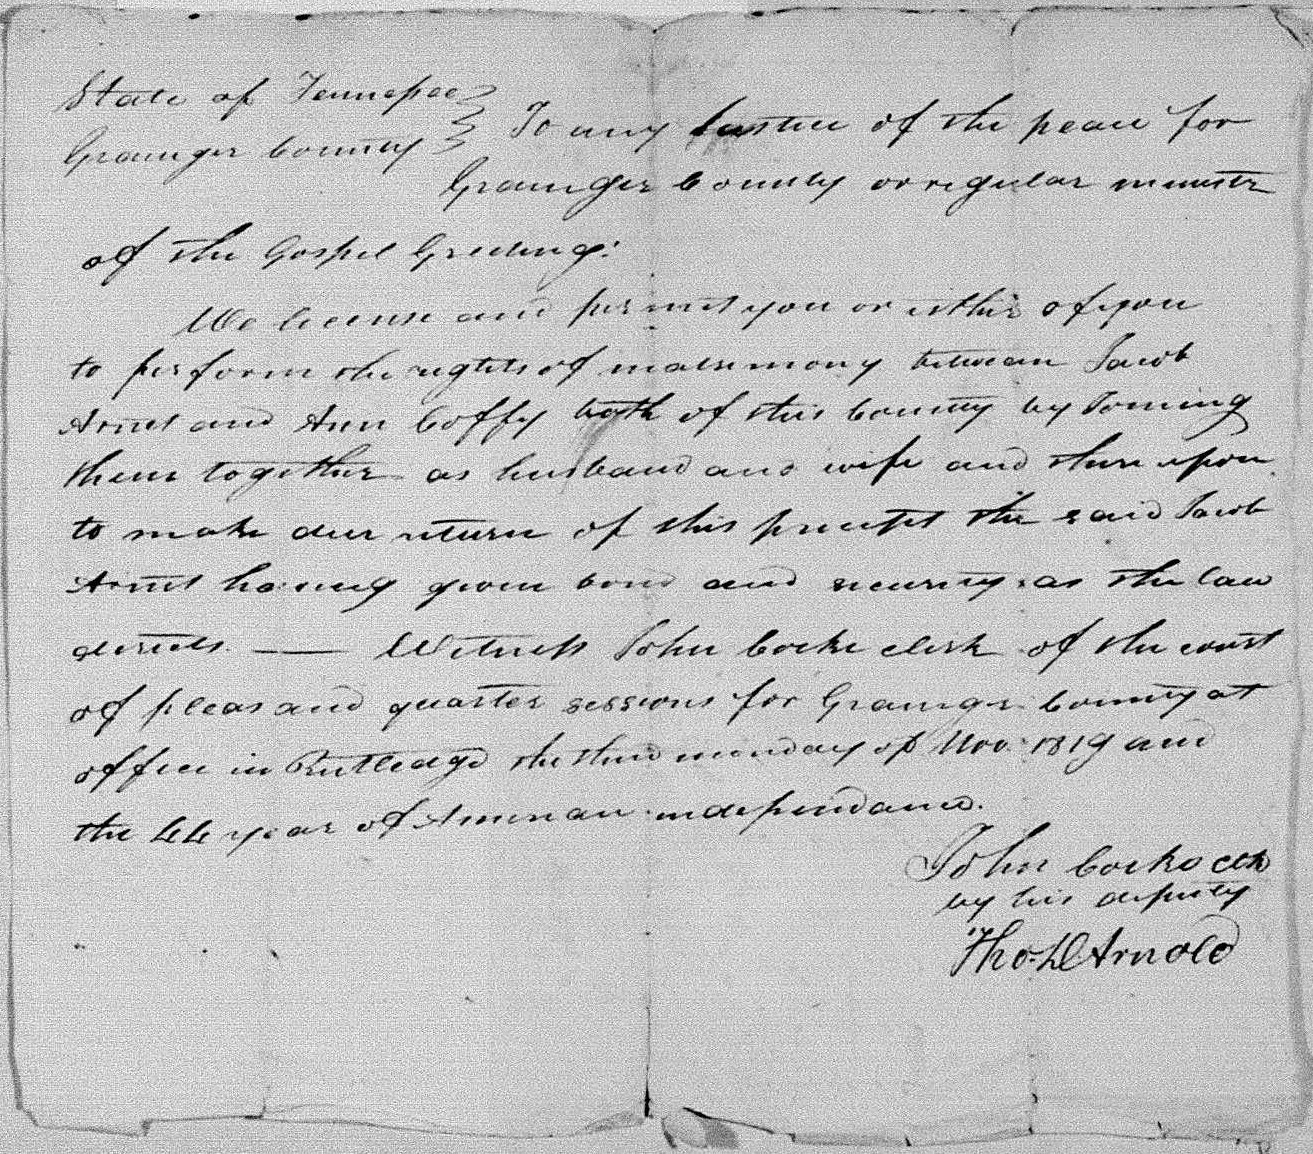 State of Tennessee
Grainger County
To any Justice of the peace for
Grainger County or regular minister
of the Gospel Greeting:
We license and permit you or either of you
to perform the rights of matrimony between Jacob
Arnet and Ann Coffy both of this County by Joining
them together as husband and wife and there upon
to make due return of this precept the said Jacob
Arnet having given bond and security as the law
directs. — Witness John Cocke clerk of the court
of pleas and quarter sessions for Grainger County at
office in Rutledge the third monday of Nov. 1819 and
the 44 year of American independance.
John Cocke Clk
by his deputy
Tho. D Arnold